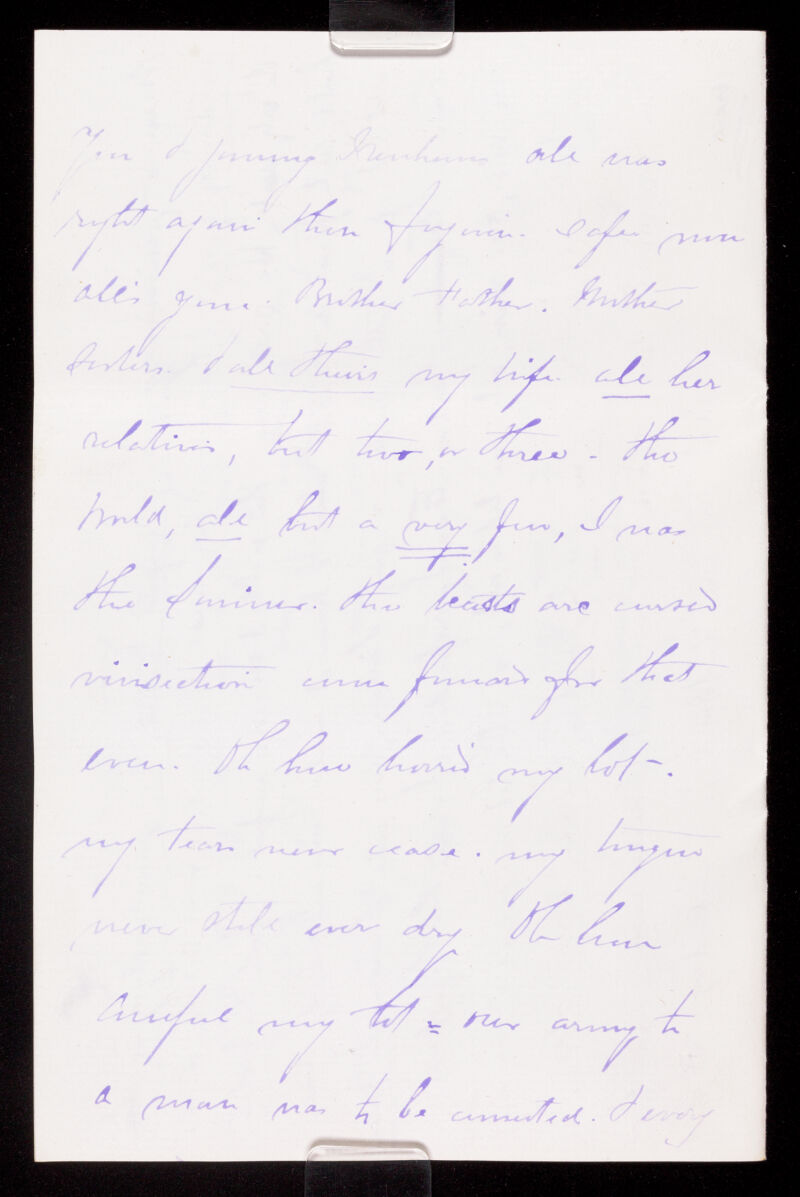 You & joining all was
right again then forgive. I after now
all's gone. Brother Father. Mother
Sisters. & all theirs my wife all her
relatives, but two, or three - the
World, all but a very few, I was
the Sinner. the beasts are cursed
vivisection came forward for that
even. Oh how horrid my lot -.
my tears never cease. my tongue
never still ever dry Oh how
awful my lot = our army to
a man was to be converted. & every